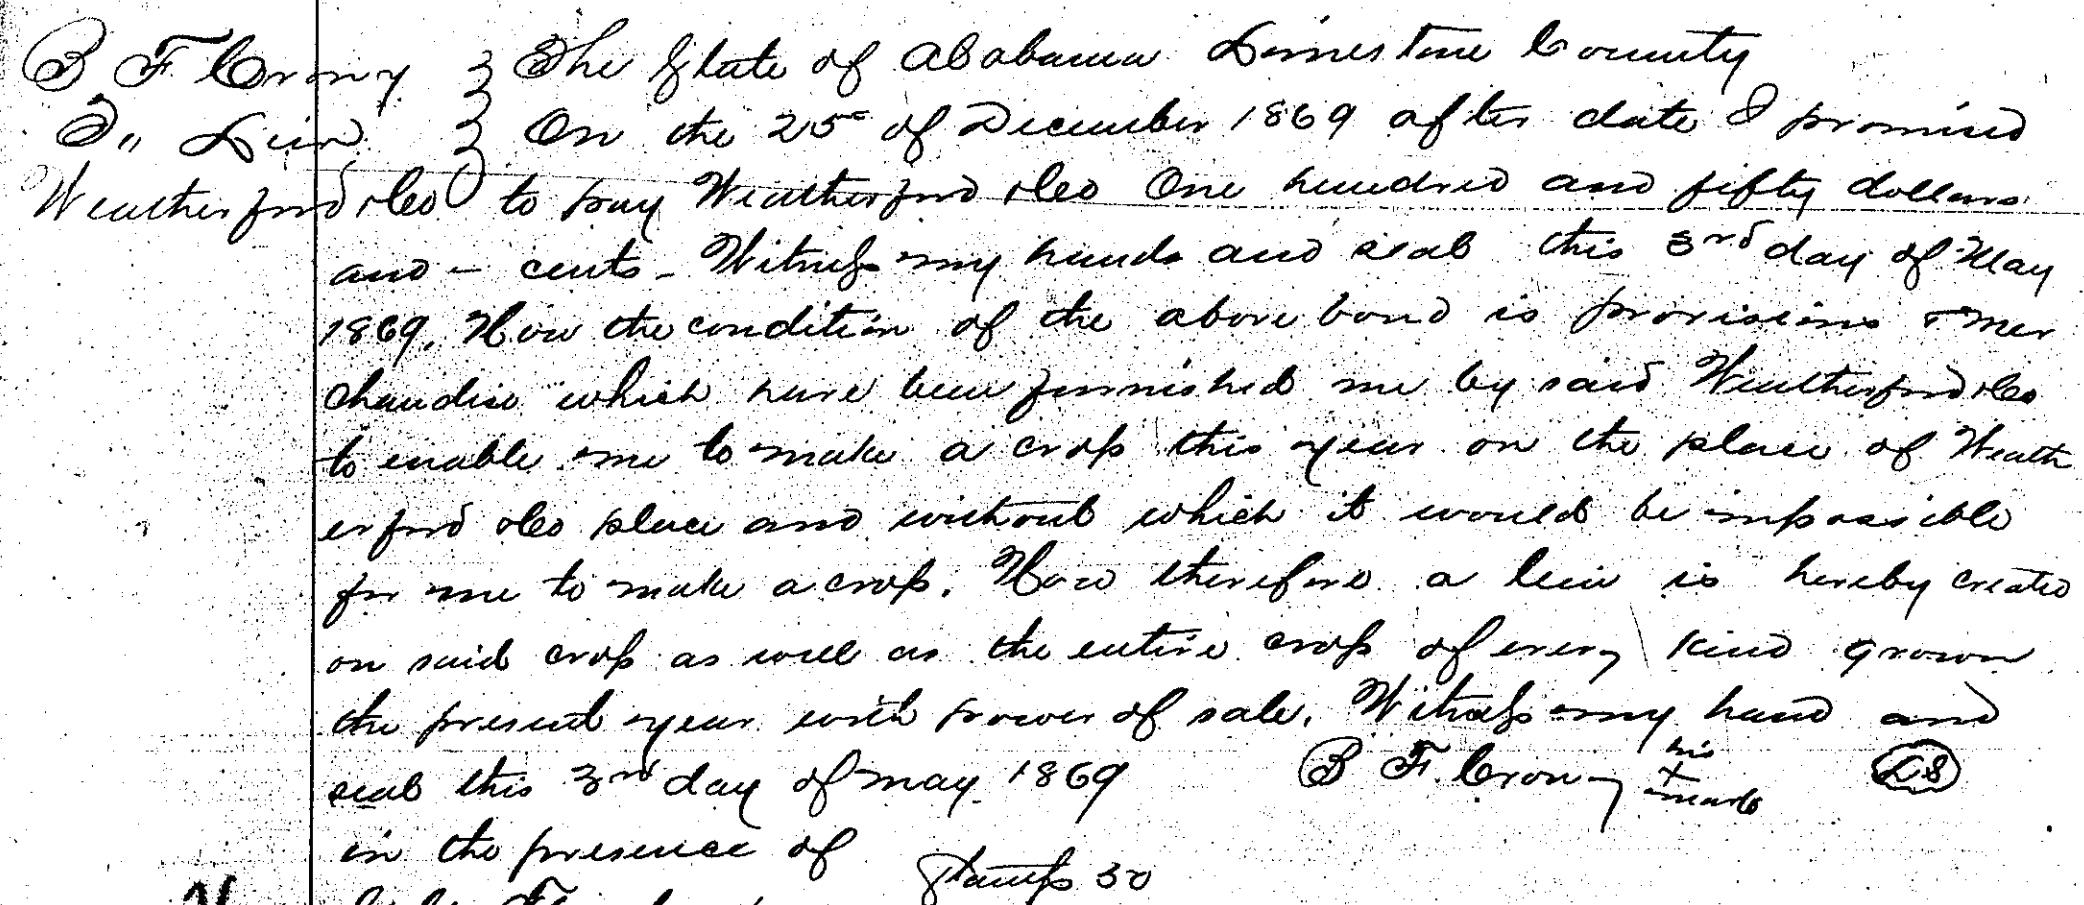 B F Crony } The State of Alabama Limestone County
To,, Lien } On the 25" of December 1869 after date I promised
Weatherford &Co } to pay Weatherford &Co One hundred and fifty dollars
and – cents – Witness my hands and seal this 3rd day of May
1869. Now the condition of the above bond is provisions & mer
chandise which have been furnished me by said Weatherford &Co
to enable me to make a crop this year on the place of Weath
erford &Co place and without which it would be impossible
for me to make a crop. Now therefore a lein is hereby created
on said crop as well as the entire crop of every kind grown
the present year with power of sale. Witness my hand and
seal this 3rd day of May 1869 B F. Crony his x mark LS
in the presence of
Stamps 50